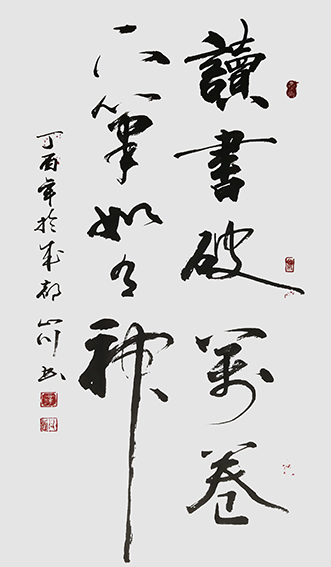 讀書破萬卷
下筆如有神
丁酉年於成都山川書